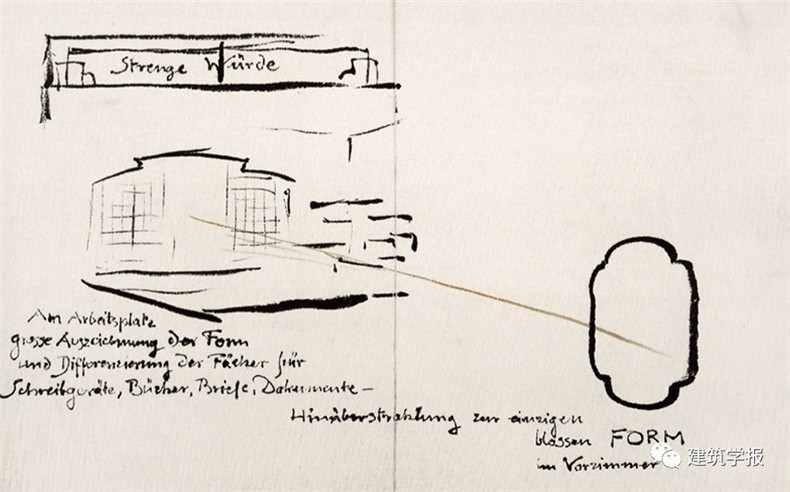 Strenge Würde
Am Arbeitsplatz
grosse Auszeichnung der Form
und Differenzierung der Fächer für
Schreibgeräte, Bücher, Briefe, Dokumente –
Hinüberstrahlung zur einzigen
blossen FORM
im Vorzimmer
建筑学报